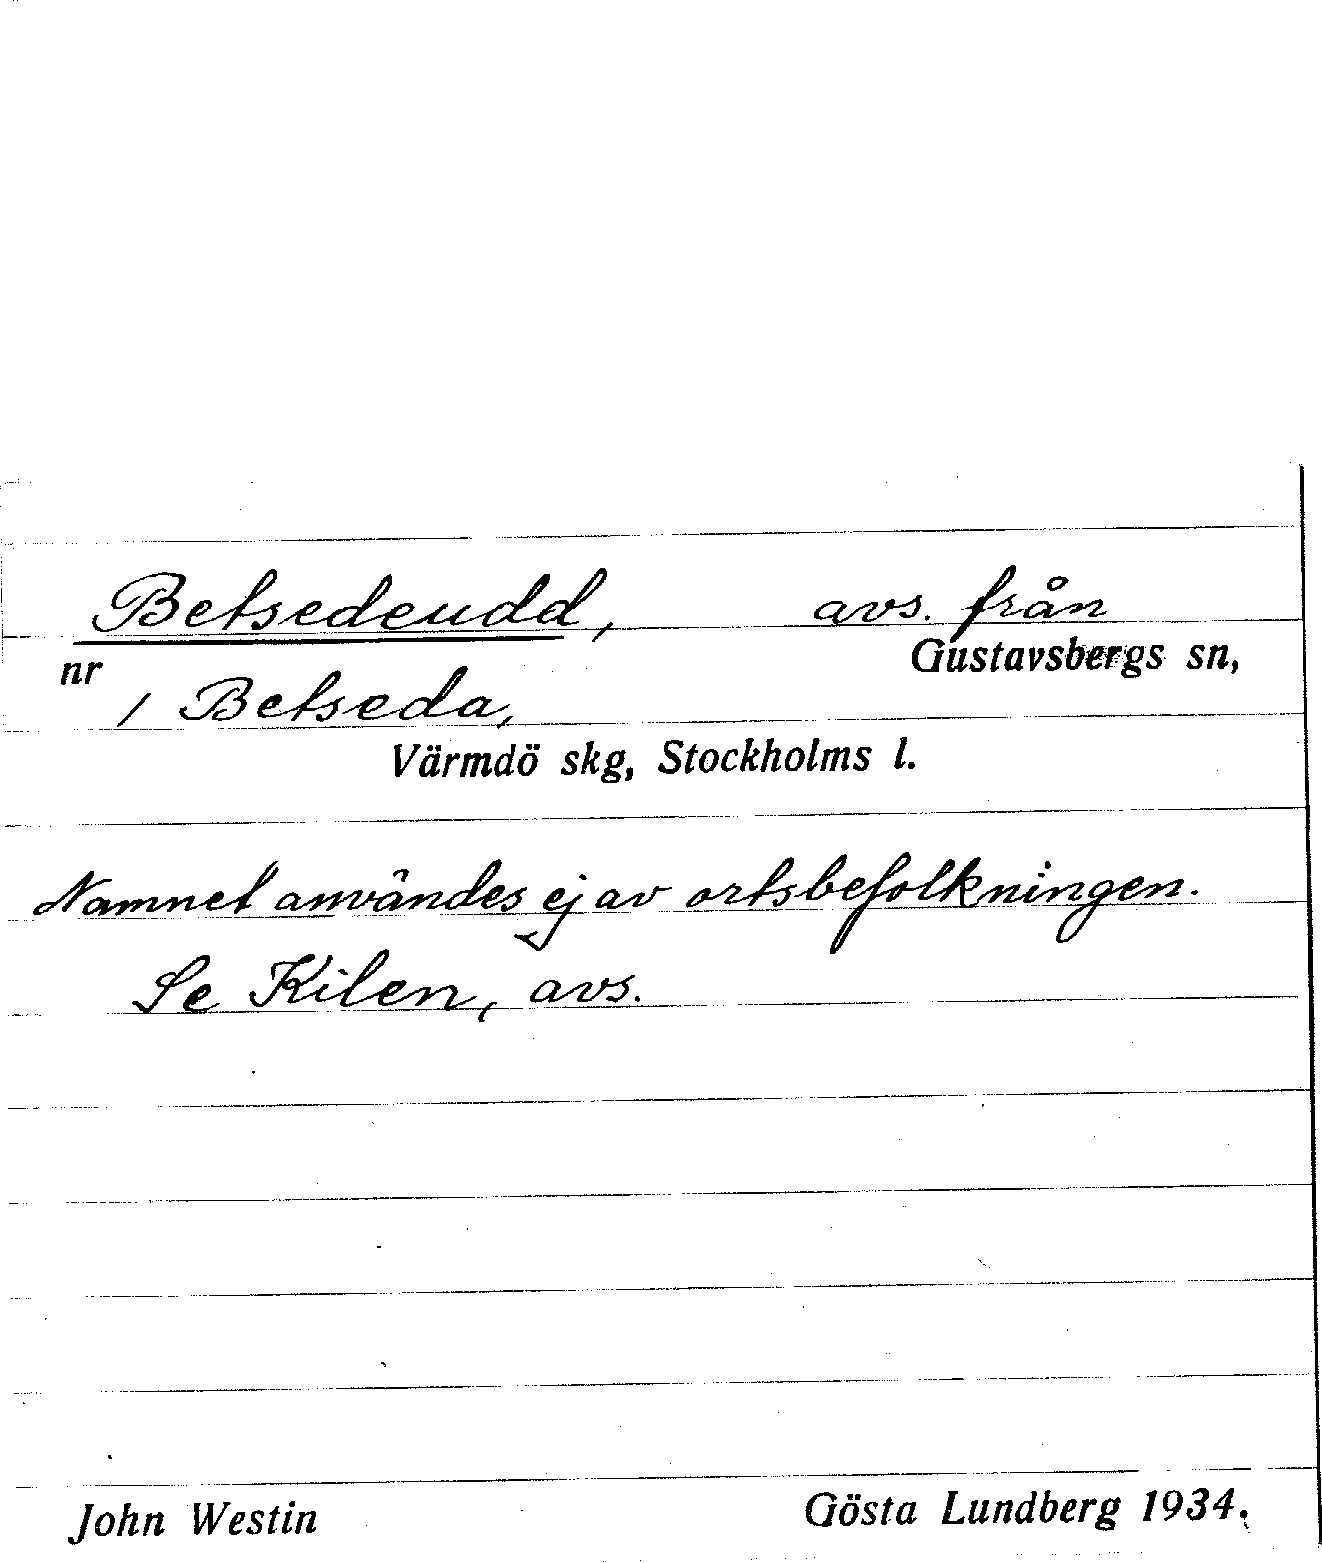 Betsedeudd, avs. från
Gustavsbergs sn,
nr
1 Betseda,
Värmdö skg, Stockholms l.
Namnet användes ej av ortsbefolkningen.
Se Kilen, avs.
John Westin Gösta Lundberg 1934.